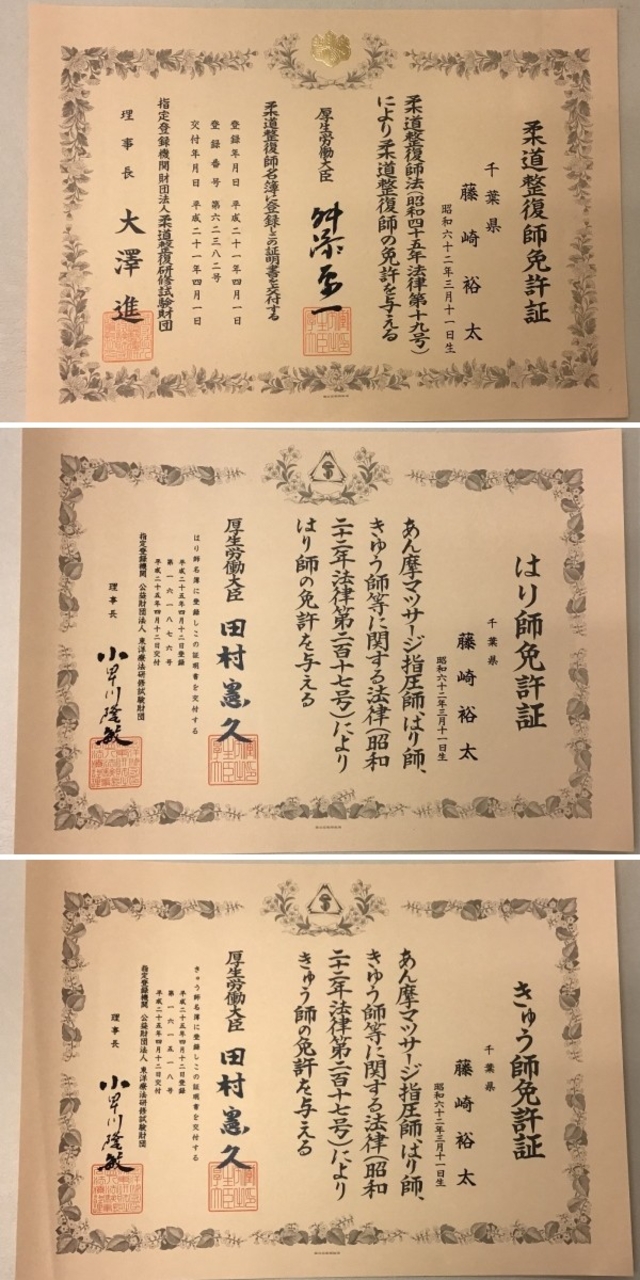 柔道整復師免許証
千葉県
藤崎裕太
昭和六十二年三月十一日生
柔道整復師法(昭和四十五年法律第十九号)
により柔道整復師の免許を与える
厚生労働大臣
舛添要一
柔道整復師名簿に登録しこの証明書を交付する
登録年月日 平成二十一年四月一日
登録番号 第六二三八二号
交付年月日 平成二十一年四月一日
指定登録機関財団法人柔道整復研修試験財団
理事長 大澤進
はり師免許証
千葉県
藤崎裕太
昭和六十二年三月十一日生
あん摩マツサージ指圧師、はり師、
きゆう師等に関する法律(昭和
二十二年法律第二百十七号)により
はり師の免許を与える
厚生労働大臣 田村憲久
はり師名簿に登録しこの証明書を交付する
平成二十五年四月十二日登録
第一六一八七六号
平成二十五年四月十二日交付
指定登録機関 公益財団法人 東洋療法研修試験財団
理事長 小早川隆敏
きゅう師免許証
千葉県
藤崎裕太
昭和六十二年三月十一日生
あん摩マツサージ指圧師、はり師、
きゆう師等に関する法律(昭和
二十二年法律第二百十七号)により
きゅう師の免許を与える
厚生労働大臣 田村憲久
きゅう師名簿に登録しこの証明書を交付する
平成二十五年四月十二日登録
第一六一五一八号
平成二十五年四月十二日交付
指定登録機関 公益財団法人 東洋療法研修試験財団
理事長 小早川隆敏